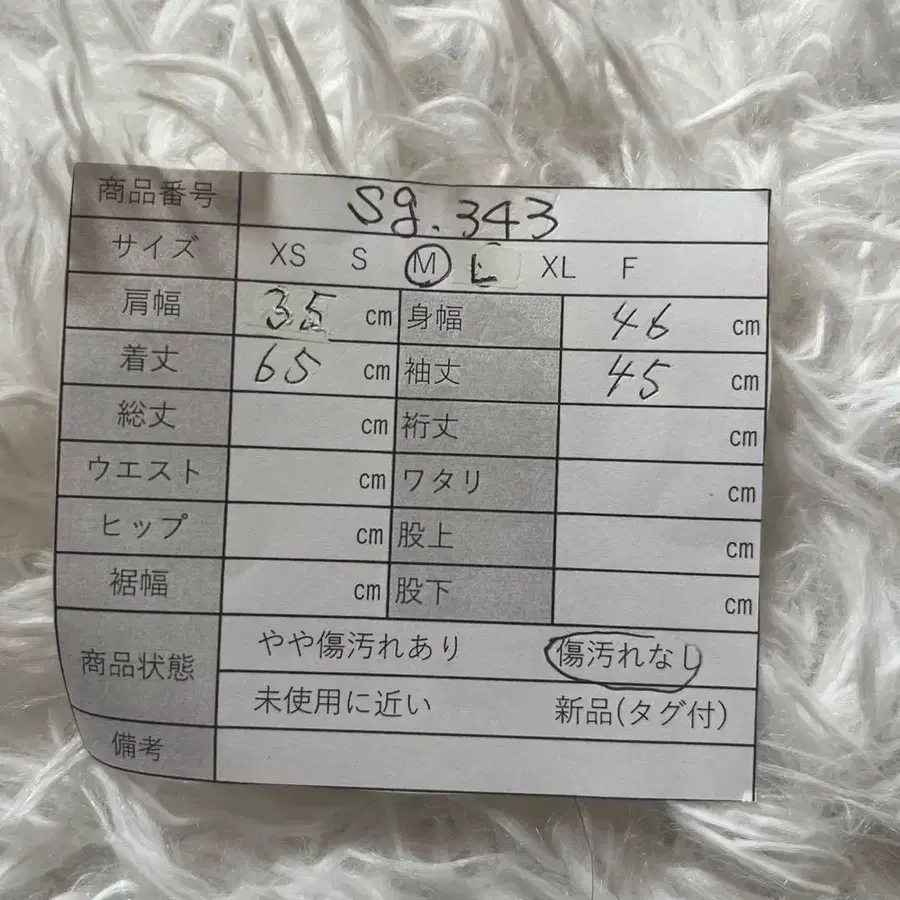 商品番号 sg.343
サイズ XS S M L XL F
肩幅 35 cm 身幅 46 cm
着丈 65 cm 袖丈 45 cm
総丈 cm 裄丈 cm
ウエスト cm ワタリ cm
ヒップ cm 股上 cm
裾幅 cm 股下 cm
商品状態 やや傷汚れあり 傷汚れなし
未使用に近い 新品(タグ付)
備考